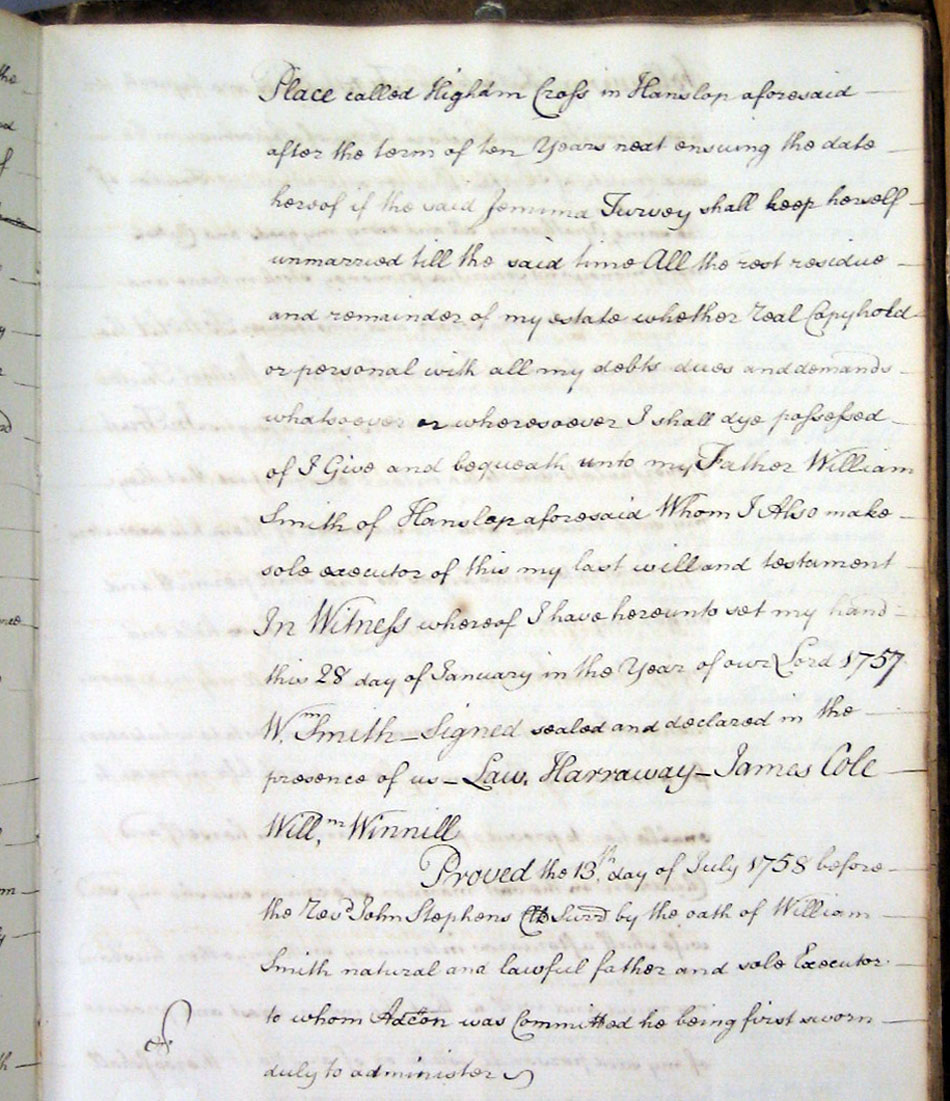 Place called Higham Cross in Hanslop aforesaid
after the term of ten Years next ensuing the date
hereof if the said Jemima Turvey shall keep herself
unmarried till the said time All the rest residue
and remainder of my estate whether real Copyhold
or personal with all my debts dues and demands
whatsoever or wheresoever I shall dye possessed
of I Give and bequeath unto my Father William
Smith of Hanslop aforesaid Whom I Also make
sole executor of this my last will and testament
In Witness whereof I have hereunto set my hand
this 28 day of January in the Year of our Lord 1757
Wm. Smith – Signed sealed and declared in the
presence of us – Law. Harraway – James Cole
Will.m Winnill
Proved the 13th. day of July 1758 before
the Revd John Stephens by the oath of William
Smith natural and lawful father and sole Executor
to whom Adcon was Committed he being first sworn
duly to administer